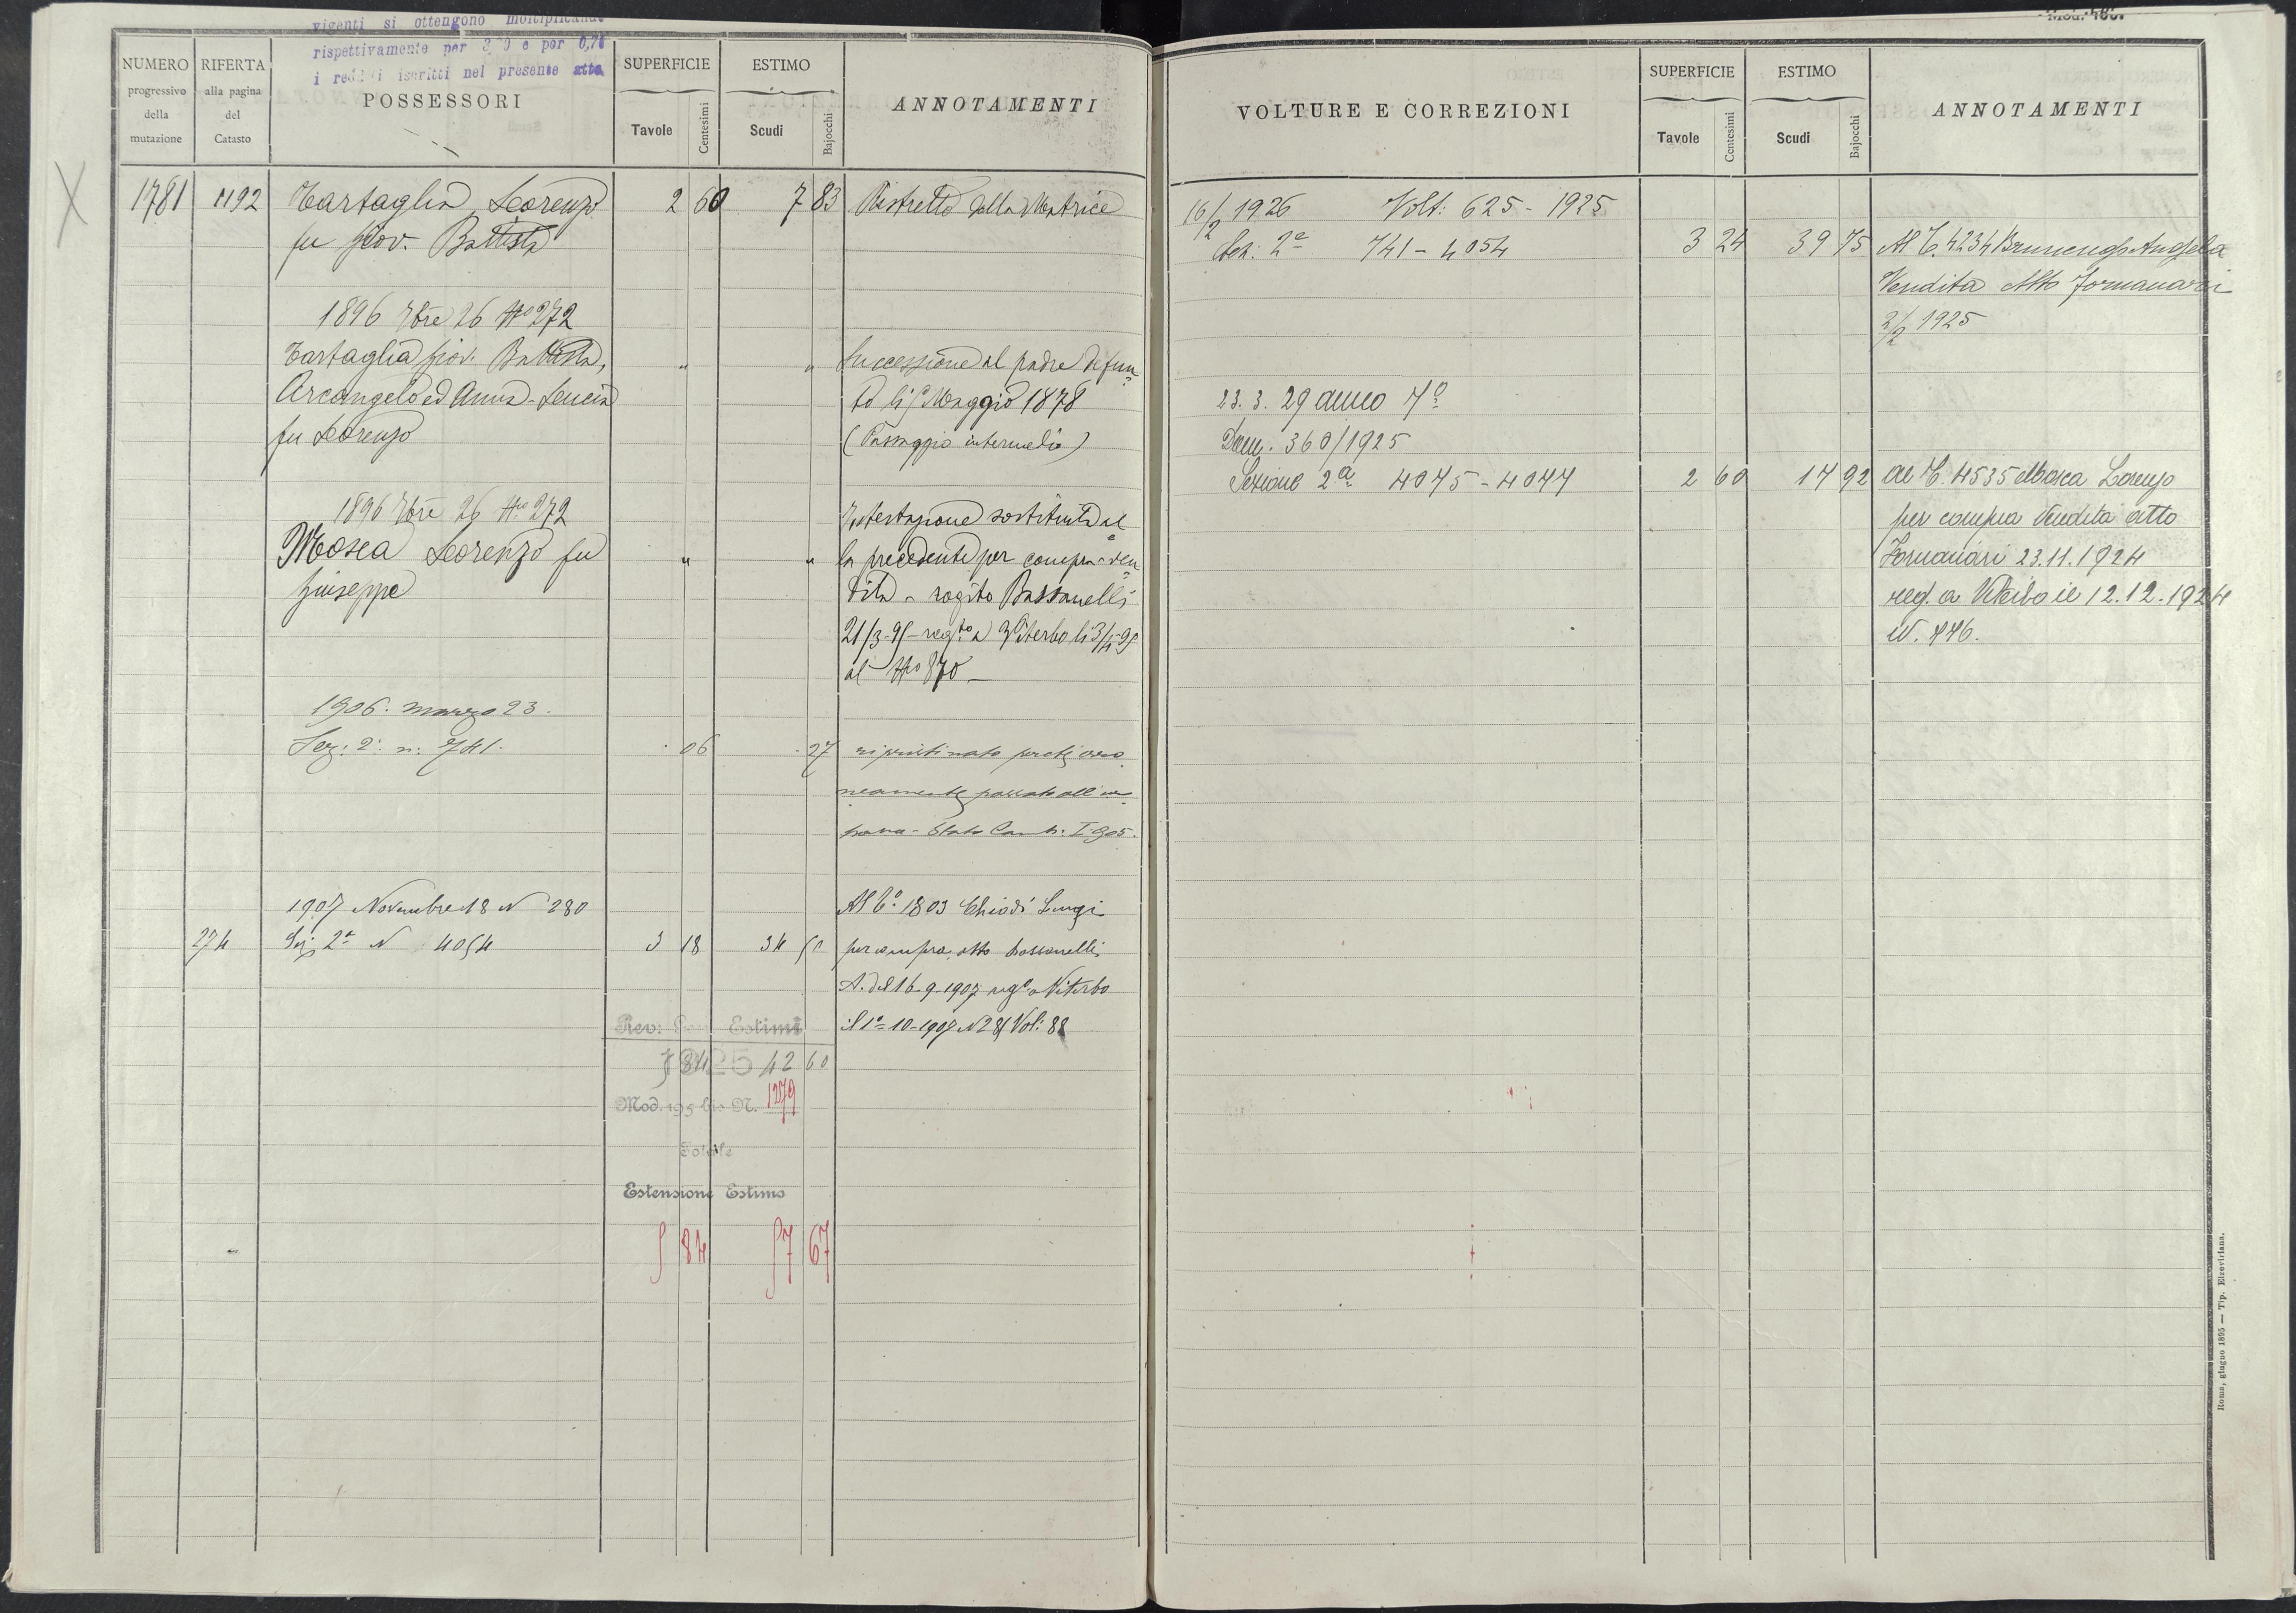 vigenti si ottengono moltiplicando
rispettivamente per e per 0,78
i redditi iscritti nel presente atto
NUMERO progressivo della mutazione
RIFERTA alla pagina del Catasto
POSSESSORI
SUPERFICIE
Tavole Centesimi
ESTIMO
Scudi Bajocchi
ANNOTAMENTI
1781 1192 Tartaglia Lorenzo 2 60 7 83 Ristretto dalla Matrice
fu Giov. Battista
1896 7bre 26 No 272
Tartaglia Giov. Battista, " " Successione al padre defun
Arcangelo ed Anna-Lucia to li Maggio 1878
fu Lorenzo (Passaggio intermedio)
1896 7bre 26 No 272 Intestazione sostituita al
Mosca Lorenzo fu " " la precedente per compra-ven
Giuseppe dita - rogito Bassanelli
21/3-95-regto a Viterbo li 3/4-95
al No 870
1906. marzo 23.
Sez: 2a n: 741. 06 27 ripristinato perchè erro
neamente passato all'im
posta - Stato Camb: I 905.
1907 Novembre 18 N 280 Al Co: 1803 Chiodi Luigi
274 Sez 2a N 4054 3 18 34 50 per compra, atto Bassanelli
A. del 16-9-1907 rego a Viterbo
il 1o-10-1907 N 281 Vol: 88
Rev: Estimi
1925
5 84 42 60
Mod. 195 bis N. 1279
Totale
Estensione Estimo
5 84 57 67
Mod.
VOLTURE E CORREZIONI
SUPERFICIE
Tavole Centesimi
ESTIMO
Scudi Bajocchi
ANNOTAMENTI
16/2 1926 Volt: 625 - 1925
Sez: 2a 741 - 4054 3 24 39 75 Al C. 4234 Brunengo Angela
Vendita Atto Fornanari
2/2 1925
23. 3. 29 anno 7o
Dom. 360/1925
Sezione 2a 4075 - 4077 2 60 17 92 al C. 4535 Mosca Lorenzo
per compra Vendita atto
Fornanari 23.11.1924
reg. a Viterbo il 12.12.1924
N. 776.
Roma, giugno 1895 — Tip. Elzeviriana.